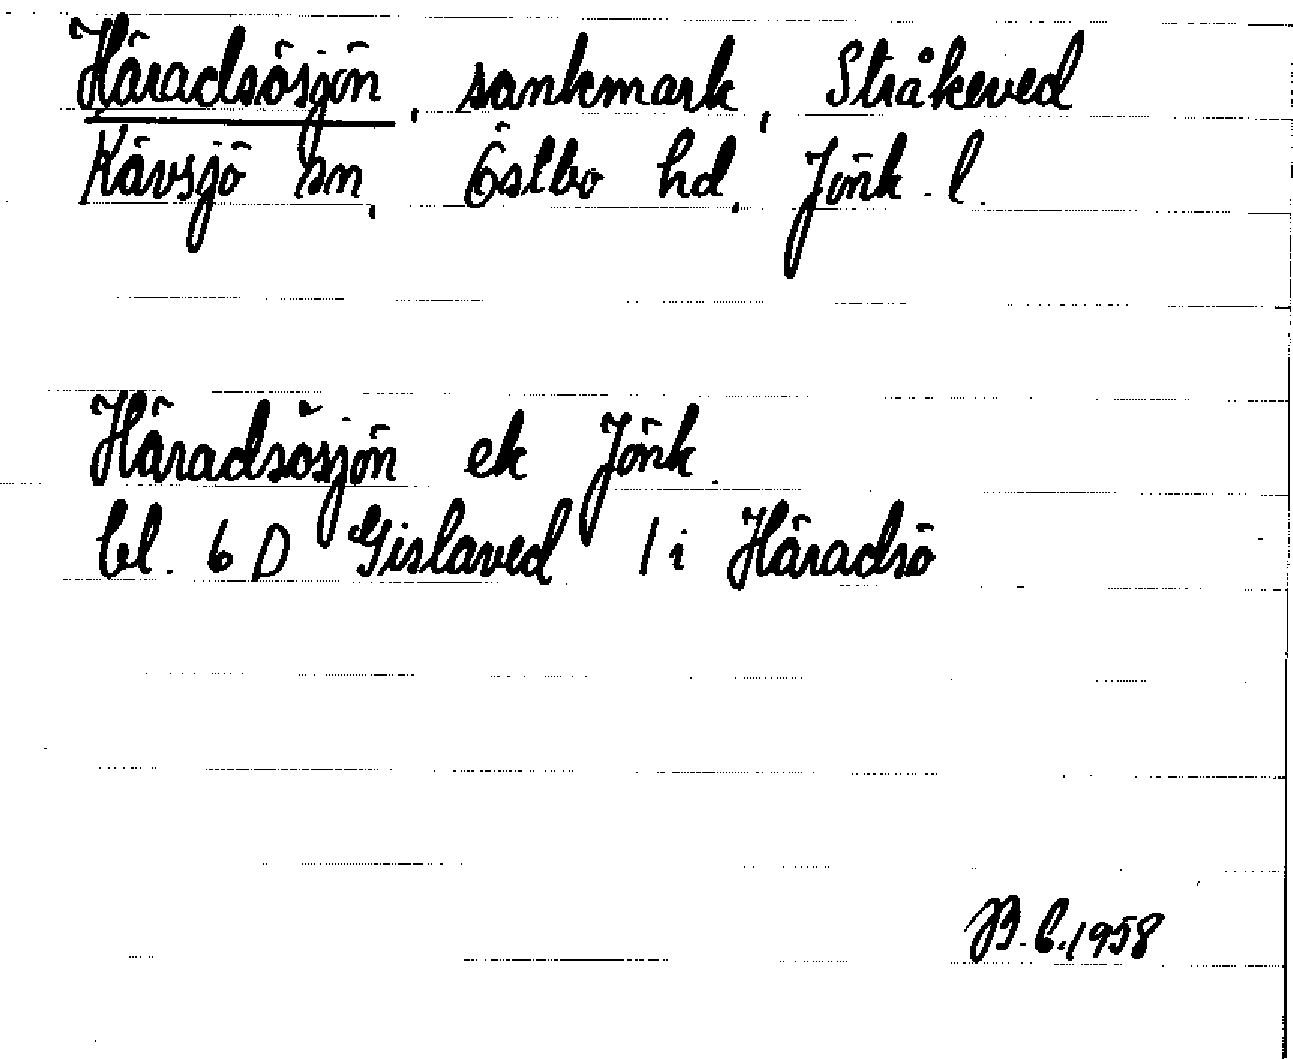 Häradsösjön, sankmark, Stråkeved
Kävsjö sn, Östbo hd, Jönk. l.
Häradsösjön ek Jönk.
bl. 6 D Gislaved 1 i Häradsö
B. 6. 1958